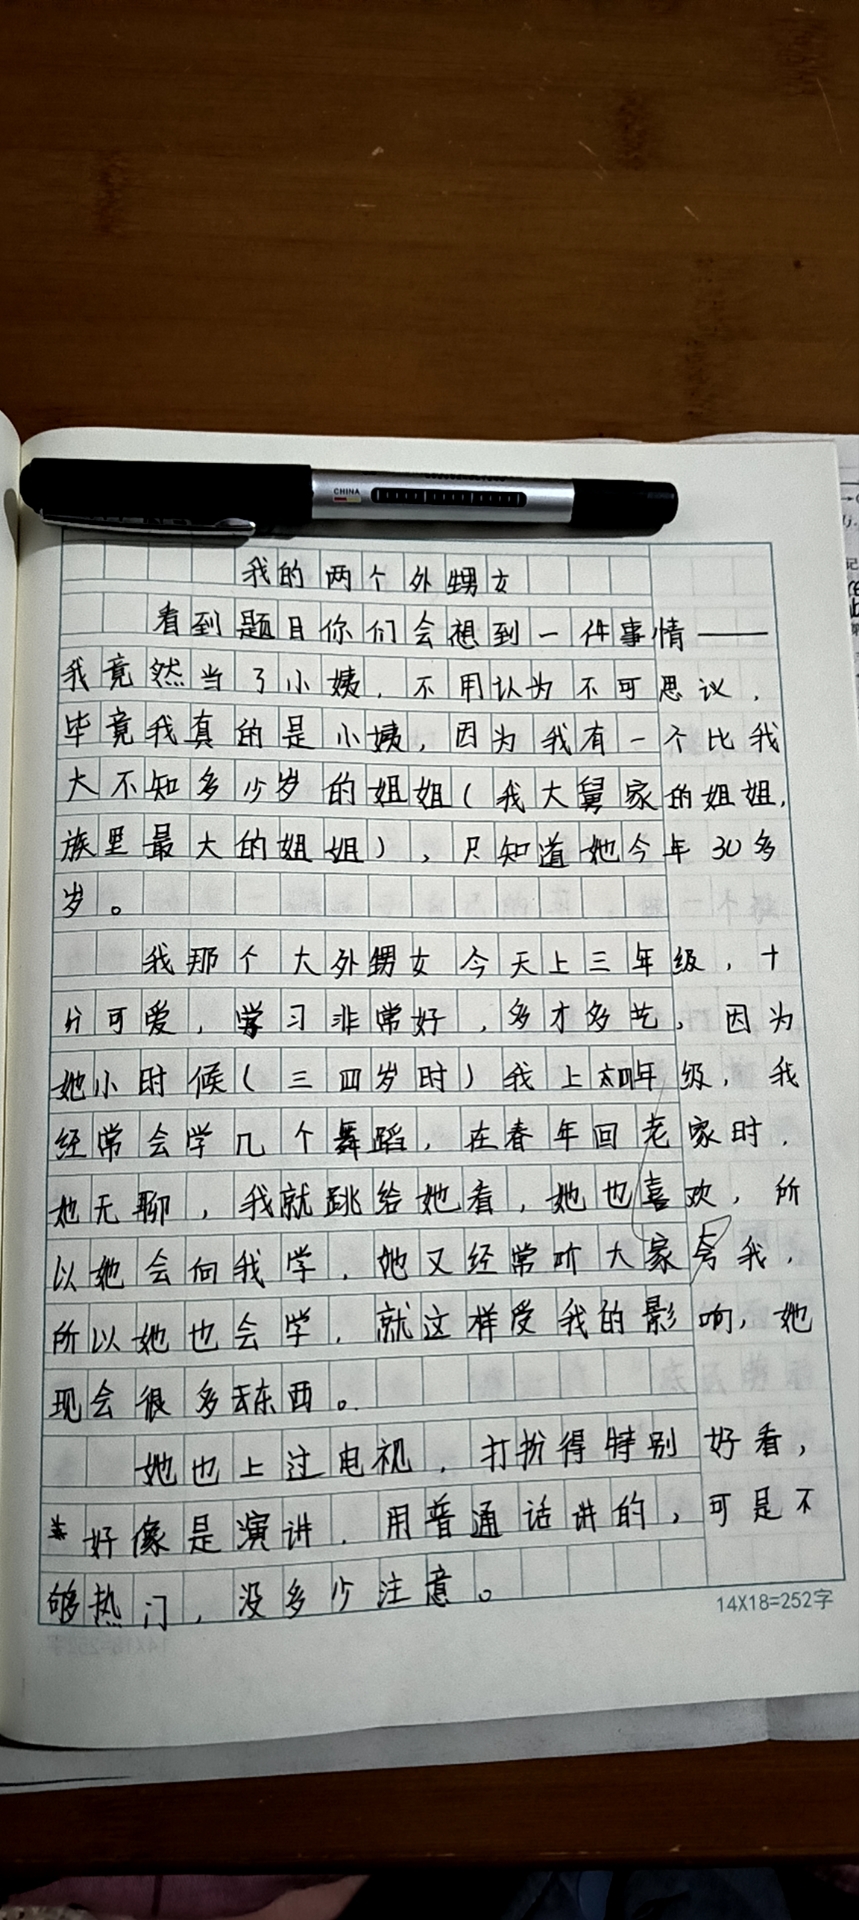 CHINA
我的两个外甥女
看到题目你们会想到一件事情——
我竟然当了小姨，不用认为不可思议，
毕竟我真的是小姨，因为我有一个比我
大不知多少岁的姐姐(我大舅家的姐姐,
族里最大的姐姐)，只知道她今年30多
岁。
我那个大外甥女今天上三年级，十
分可爱，学习非常好，多才多艺，因为
她小时候(三四岁时)我上四年级，我
经常会学几个舞蹈，在春年回老家时，
她无聊，我就跳给她看，她也喜欢，所
以她会向我学，她又经常听大家夸我，
所以她也会学，就这样受我的影响，她
现会很多东西。
她也上过电视，打扮得特别好看，
好像是演讲，用普通话讲的，可是不
够热门，没多少注意。
14X18=252字